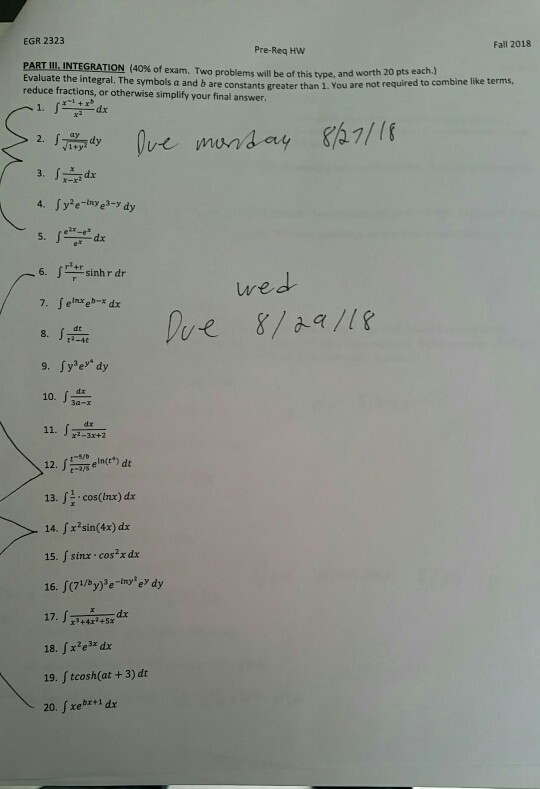 EGR 2323
Pre-Req HW
Fall 2018
PART III. INTEGRATION (40% of exam. Two problems will be of this type, and worth 20 pts each.)
Evaluate the integral. The symbols a and b are constants greater than 1. You are not required to combine like terms,
reduce fractions, or otherwise simplify your final answer.
1. ∫ (x⁻¹ + xᵇ)/x² dx
2. ∫ ay/√(1+y²) dy
Due monday 8/27/18
3. ∫ x/(x−x²) dx
4. ∫ y²e^(−lny) e^(3−y) dy
5. ∫ (e^(2x)−e^x)/e^x dx
6. ∫ (r²+r)/r sinh r dr
wed
7. ∫ e^(lnx) e^(b−x) dx
Due 8/29/18
8. ∫ dt/(t²−4t)
9. ∫ y³e^(y⁴) dy
10. ∫ dx/(3a−x)
11. ∫ dx/(x²−3x+2)
12. ∫ t^(−5/b)/t^(−2/5) e^(ln(t⁴)) dt
13. ∫ 1/x · cos(lnx) dx
14. ∫ x² sin(4x) dx
15. ∫ sinx · cos²x dx
16. ∫(7^(1/b)y)³e^(−lny²)e^y dy
17. ∫ x/(x³+4x²+5x) dx
18. ∫ x²e^(3x) dx
19. ∫ tcosh(at + 3) dt
20. ∫ xe^(bx+1) dx